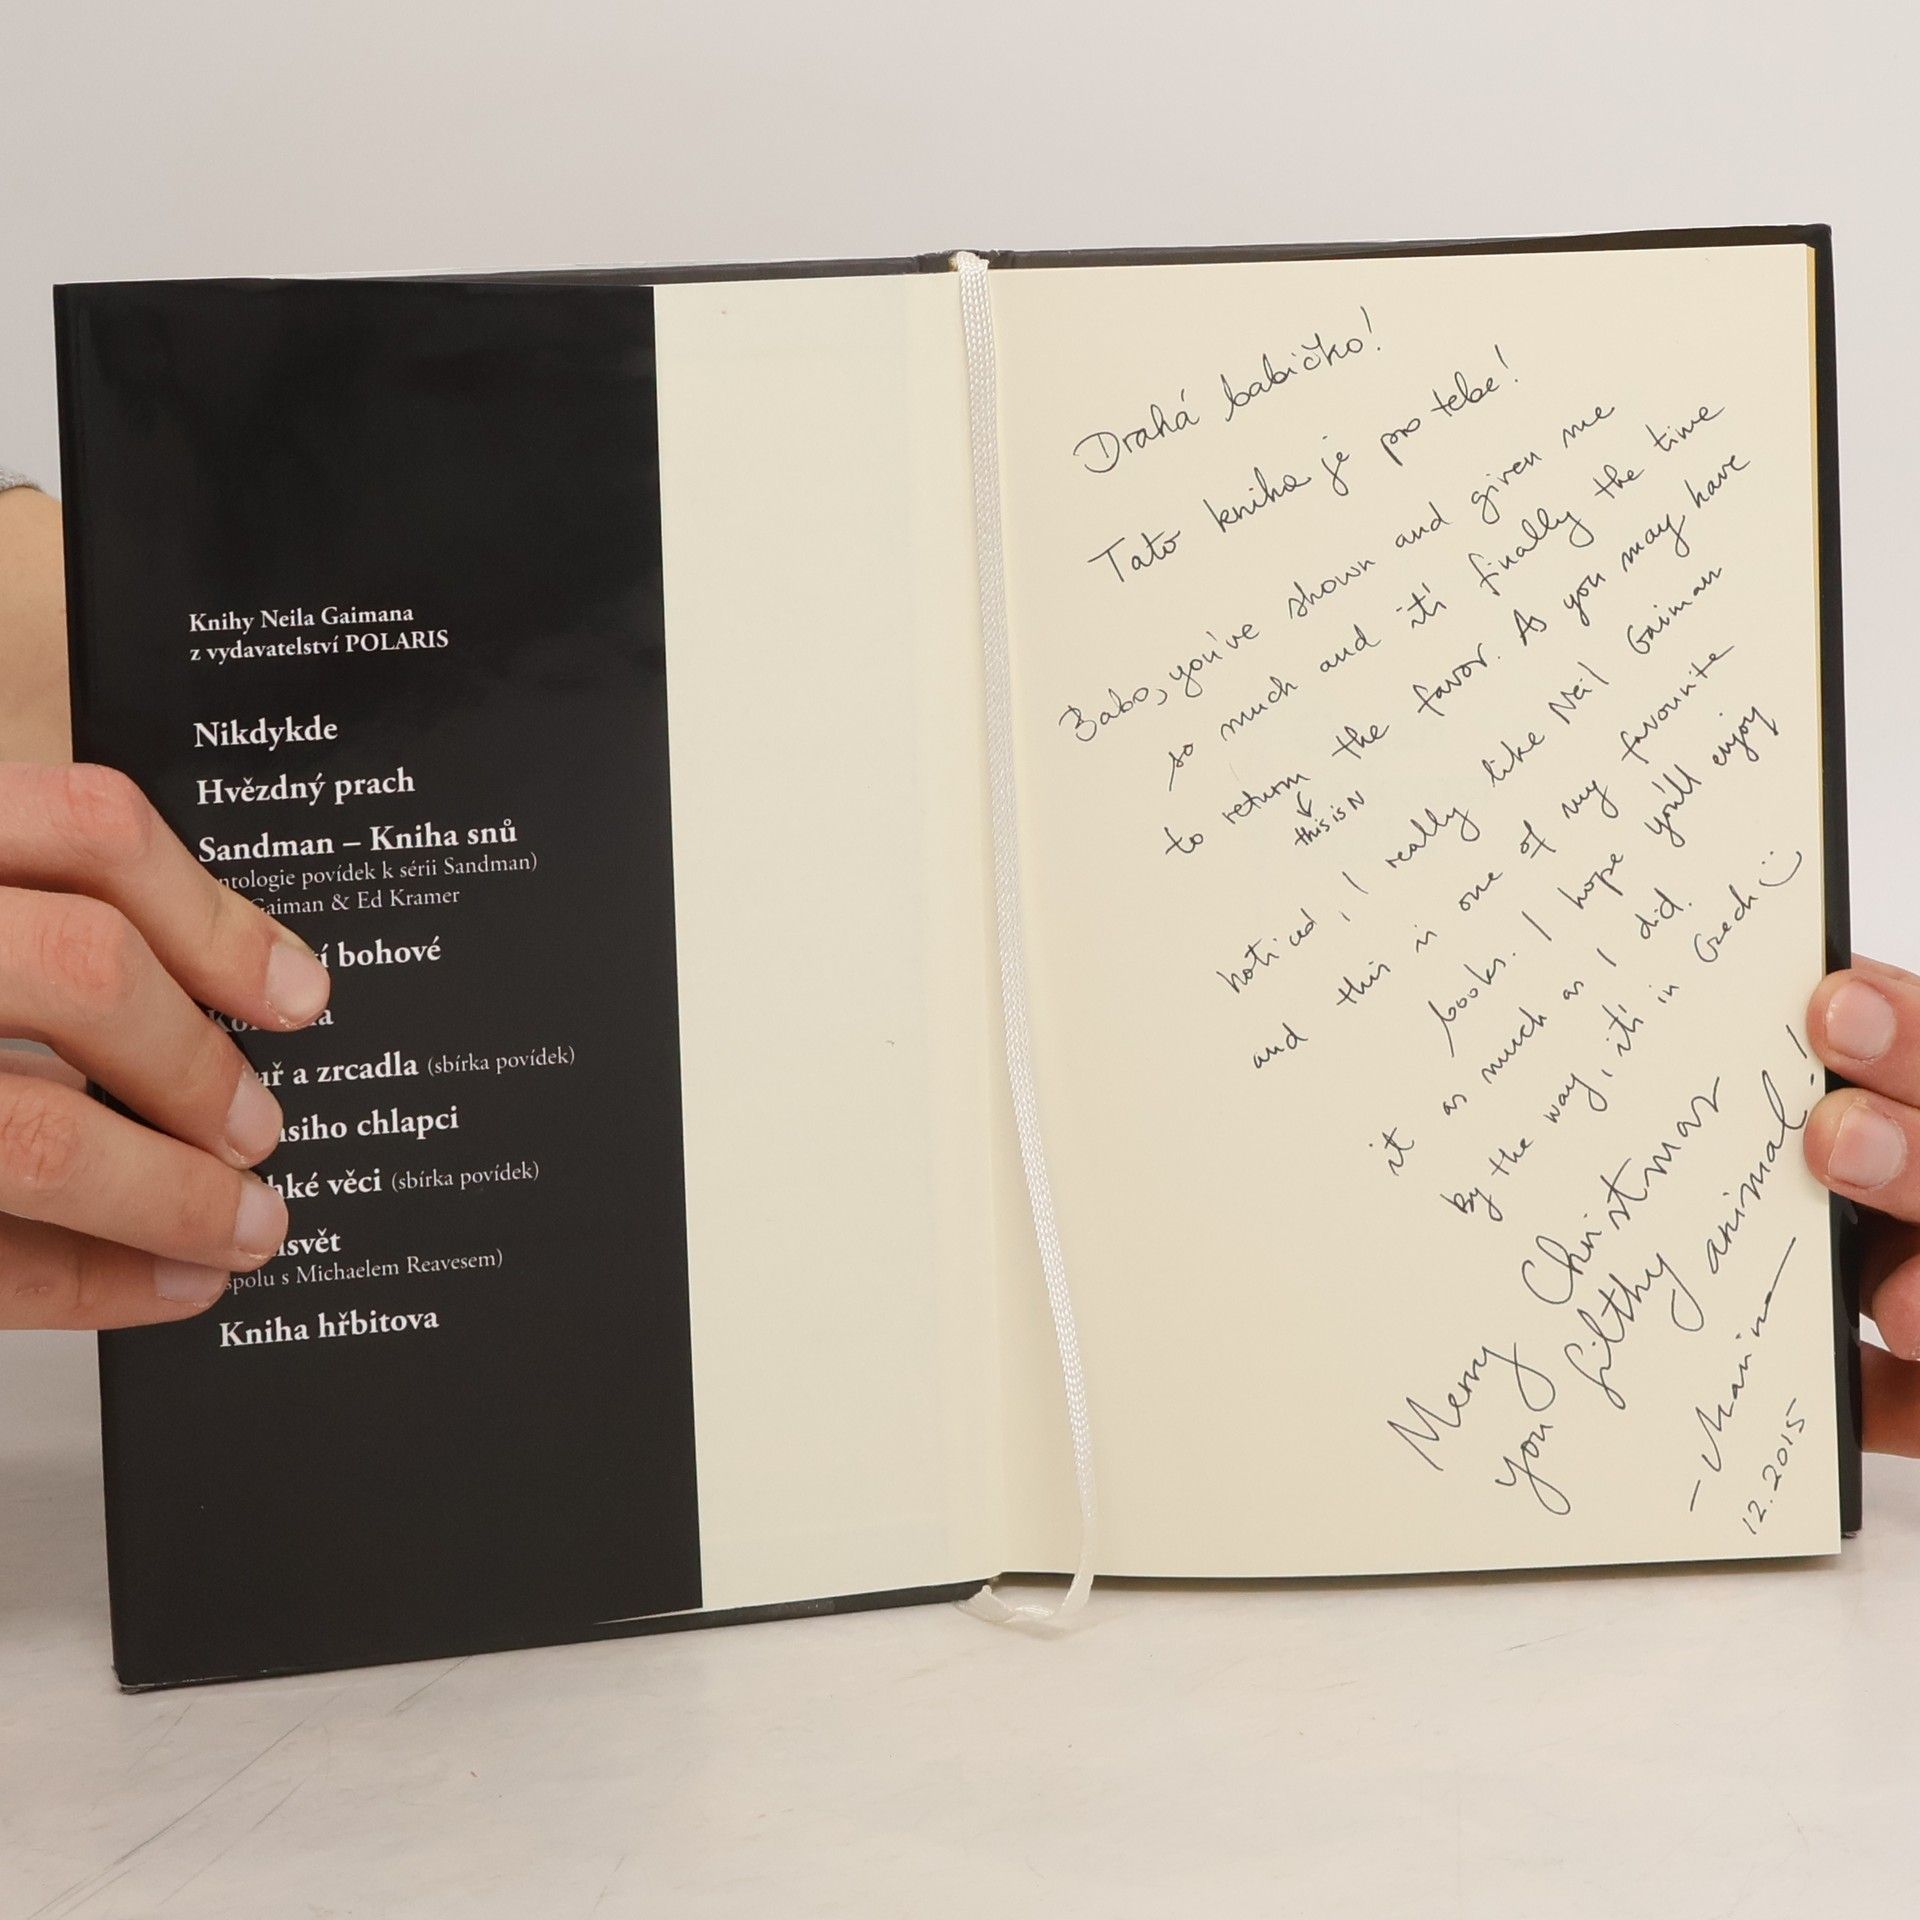 Knihy Neila Gaimana
z vydavatelství POLARIS
Nikdykde
Hvězdný prach
Sandman – Kniha snů
ntologie povídek k sérii Sandman)
Gaiman & Ed Kramer
í bohové
a
uř a zrcadla (sbírka povídek)
nsiho chlapci
hké věci (sbírka povídek)
svět
spolu s Michaelem Reavesem)
Kniha hřbitova
Drahá babičko!
Tato kniha je pro tebe!
Babo, you've shown and given me
so much and it's finally the time
to return the favor. As you may have
this is N
noticed, I really like Neil Gaiman
and this is one of my favourite
books. I hope you'll enjoy
it as much as I did.
By the way, it's in Czech :)
Merry Christmas
you filthy animal!
12.2015